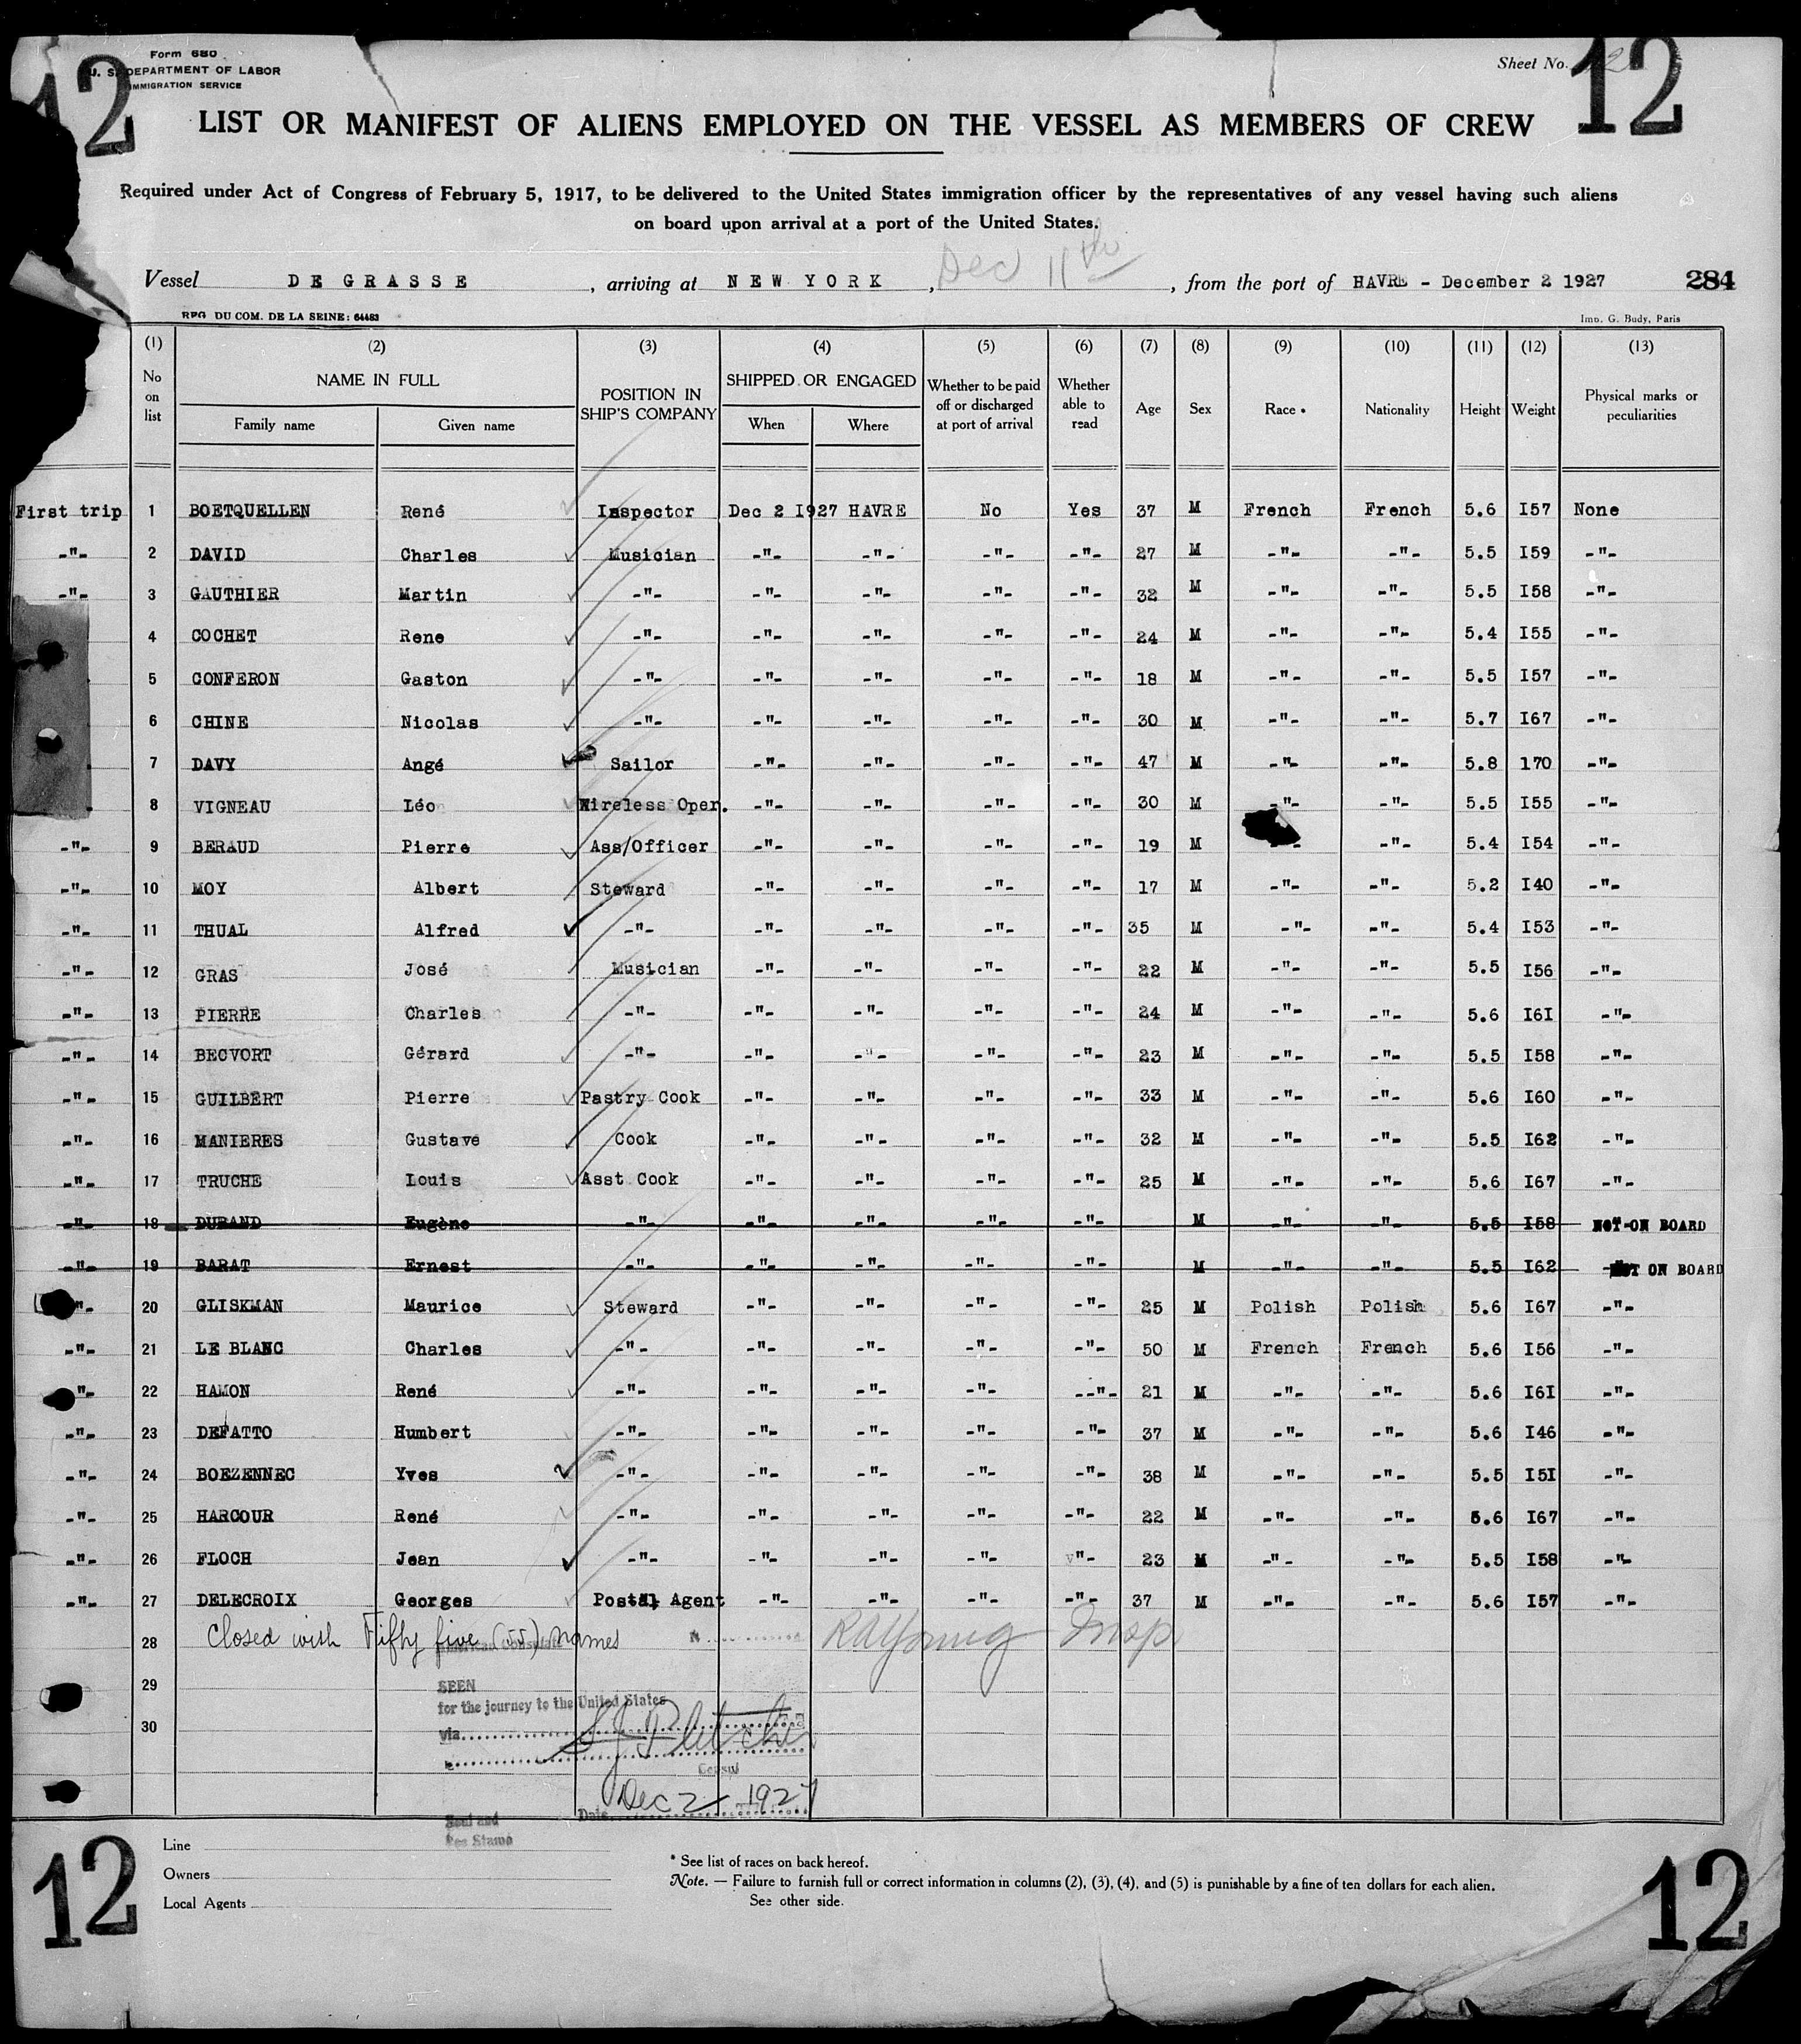 12
Form 680
U. S. DEPARTMENT OF LABOR
IMMIGRATION SERVICE
Sheet No. 12
12
LIST OR MANIFEST OF ALIENS EMPLOYED ON THE VESSEL AS MEMBERS OF CREW
Required under Act of Congress of February 5, 1917, to be delivered to the United States immigration officer by the representatives of any vessel having such aliens
on board upon arrival at a port of the United States.
Vessel DE GRASSE, arriving at NEW YORK, Dec 11th, from the port of HAVRE - December 2 1927 284
REG. DU COM. DE LA SEINE: 64483 Imp. G. Budy, Paris
(1) (2) (3) (4) (5) (6) (7) (8) (9) (10) (11) (12) (13)
No on list NAME IN FULL Family name Given name POSITION IN SHIP'S COMPANY SHIPPED OR ENGAGED When Where Whether to be paid off or discharged at port of arrival Whether able to read Age Sex Race * Nationality Height Weight Physical marks or peculiarities
First trip 1 BOETQUELLEN René Inspector Dec 2 I927 HAVRE No Yes 37 M French French 5.6 I57 None
-"- 2 DAVID Charles Musician -"- -"- -"- -"- 27 M -"- -"- 5.5 I59 -"-
-"- 3 GAUTHIER Martin -"- -"- -"- -"- -"- 32 M -"- -"- 5.5 I58 -"-
4 COCHET Rene -"- -"- -"- -"- -"- 24 M -"- -"- 5.4 I55 -"-
5 CONFERON Gaston -"- -"- -"- -"- -"- 18 M -"- -"- 5.5 I57 -"-
6 CHINE Nicolas -"- -"- -"- -"- -"- 30 M -"- -"- 5.7 I67 -"-
7 DAVY Angé Sailor -"- -"- -"- -"- 47 M -"- -"- 5.8 170 -"-
8 VIGNEAU Léo Wireless Oper. -"- -"- -"- -"- 30 M -"- -"- 5.5 I55 -"-
-"- 9 BERAUD Pierre Ass/Officer -"- -"- -"- -"- 19 M -"- 5.4 I54 -"-
-"- 10 MOY Albert Steward -"- -"- -"- -"- 17 M -"- -"- 5.2 I40 -"-
-"- 11 THUAL Alfred -"- -"- -"- -"- -"- 35 M -"- -"- 5.4 I53 -"-
-"- 12 GRAS José Musician -"- -"- -"- -"- 22 M -"- -"- 5.5 I56 -"-
-"- 13 PIERRE Charles -"- -"- -"- -"- -"- 24 M -"- -"- 5.6 I6I -"-
-"- 14 BECVORT Gérard -"- -"- -"- -"- -"- 23 M -"- -"- 5.5 I58 -"-
-"- 15 GUILBERT Pierre Pastry Cook -"- -"- -"- -"- 33 M -"- -"- 5.6 I60 -"-
-"- 16 MANIERES Gustave Cook -"- -"- -"- -"- 32 M -"- -"- 5.5 I62 -"-
-"- 17 TRUCHE Louis Asst Cook -"- -"- -"- -"- 25 M -"- -"- 5.6 I67 -"-
-"- 18 DURAND Eugène -"- -"- -"- -"- -"- M -"- -"- 5.5 I58 NOT ON BOARD
-"- 19 BARAT Ernest -"- -"- -"- -"- -"- M -"- -"- 5.5 I62 NOT ON BOARD
-"- 20 GLISKMAN Maurice Steward -"- -"- -"- -"- 25 M Polish Polish 5.6 I67 -"-
-"- 21 LE BLANC Charles -"- -"- -"- -"- -"- 50 M French French 5.6 I56 -"-
-"- 22 HAMON René -"- -"- -"- -"- -"- 21 M -"- -"- 5.6 I6I -"-
-"- 23 DEFATTO Humbert -"- -"- -"- -"- -"- 37 M -"- -"- 5.6 I46 -"-
-"- 24 BOEZENNEC Yves -"- -"- -"- -"- -"- 38 M -"- -"- 5.5 I5I -"-
-"- 25 HARCOUR René -"- -"- -"- -"- -"- 22 M -"- -"- 5.6 I67 -"-
-"- 26 FLOCH Jean -"- -"- -"- -"- "- 23 M -"- -"- 5.5 I58 -"-
-"- 27 DELECROIX Georges Postal Agent -"- -"- -"- -"- 37 M -"- -"- 5.6 I57 -"-
28 Closed with Fifty five (55) names RA Young Insp
American Consulate
29 SEEN
for the journey to the United States
30 via
S J Fletcher
Consul
Date Dec 2 1927
Seal and
Fee Stamp
Line
Owners
Local Agents
* See list of races on back hereof.
Note. — Failure to furnish full or correct information in columns (2), (3), (4), and (5) is punishable by a fine of ten dollars for each alien.
See other side.
12
12